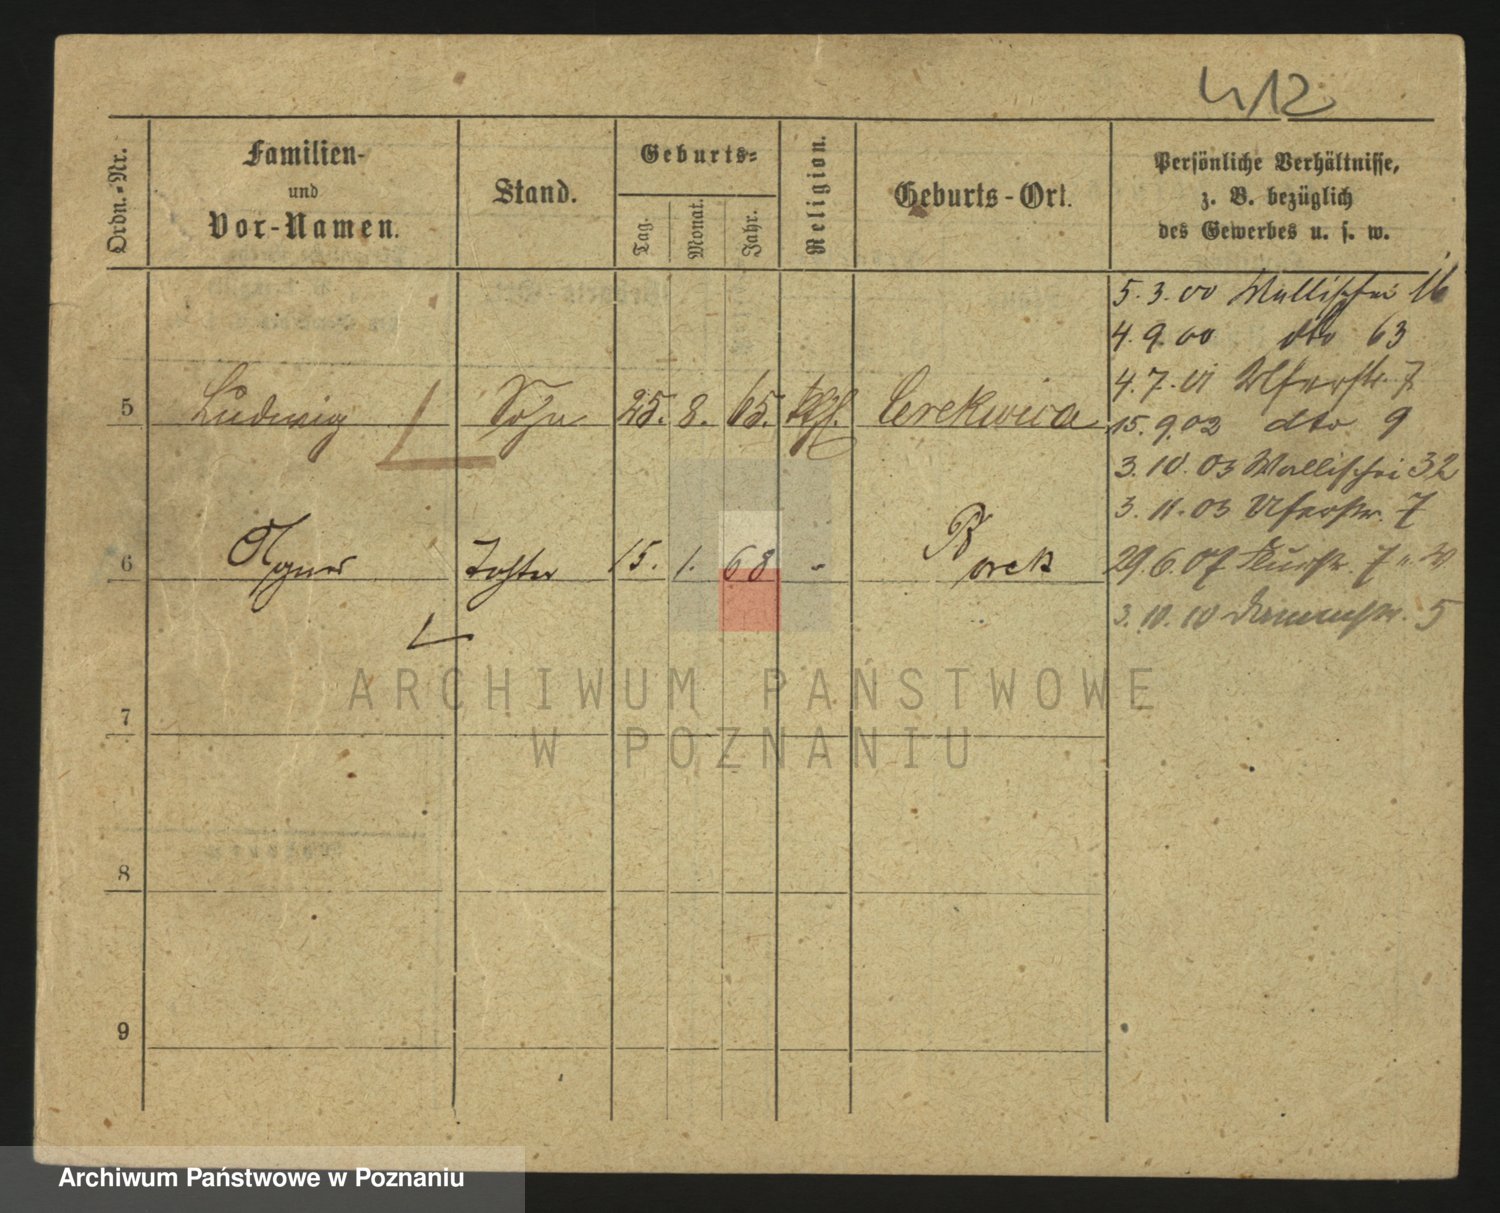 412
Ordn.-Nr.
Familien-
und
Vor-Namen.
Stand.
Geburts-
Tag.
Monat.
Jahr.
Religion.
Geburts-Ort.
Persönliche Verhältnisse,
z. B. bezüglich
des Gewerbes u. s. w.
5.3.00 Wallischei 16
4.9.00 dto 63
4.7.01 Uferstr. 7
5 Ludwig Sohn 25. 8. 65. kth. Cerekwica
15.9.02 dto 9
3.10.03 Wallischei 32
3.11.03 Uferstr. 7
6 Agnes Tochter 15. 1. 68 " Borek
29.6.07 7
3.10.10 Dammstr. 5
ARCHIWUM PAŃSTWOWE
W POZNANIU
7
8
9
Archiwum Państwowe w Poznaniu